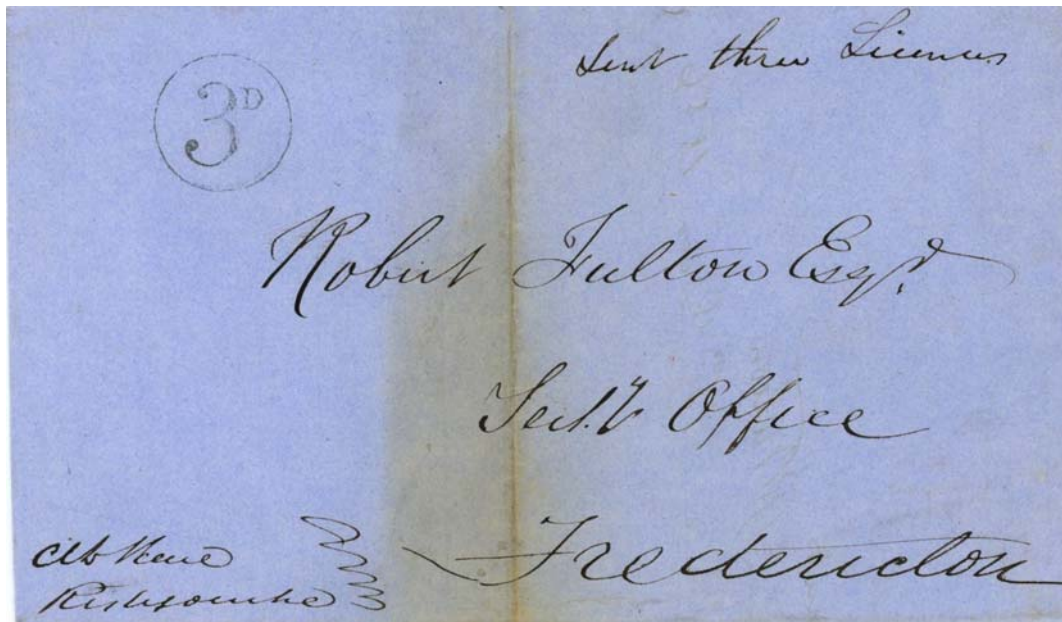 Sent three Licenses
3D
Robert Fulton Esqr.
Secy. Office
Fredericton
Richibucto